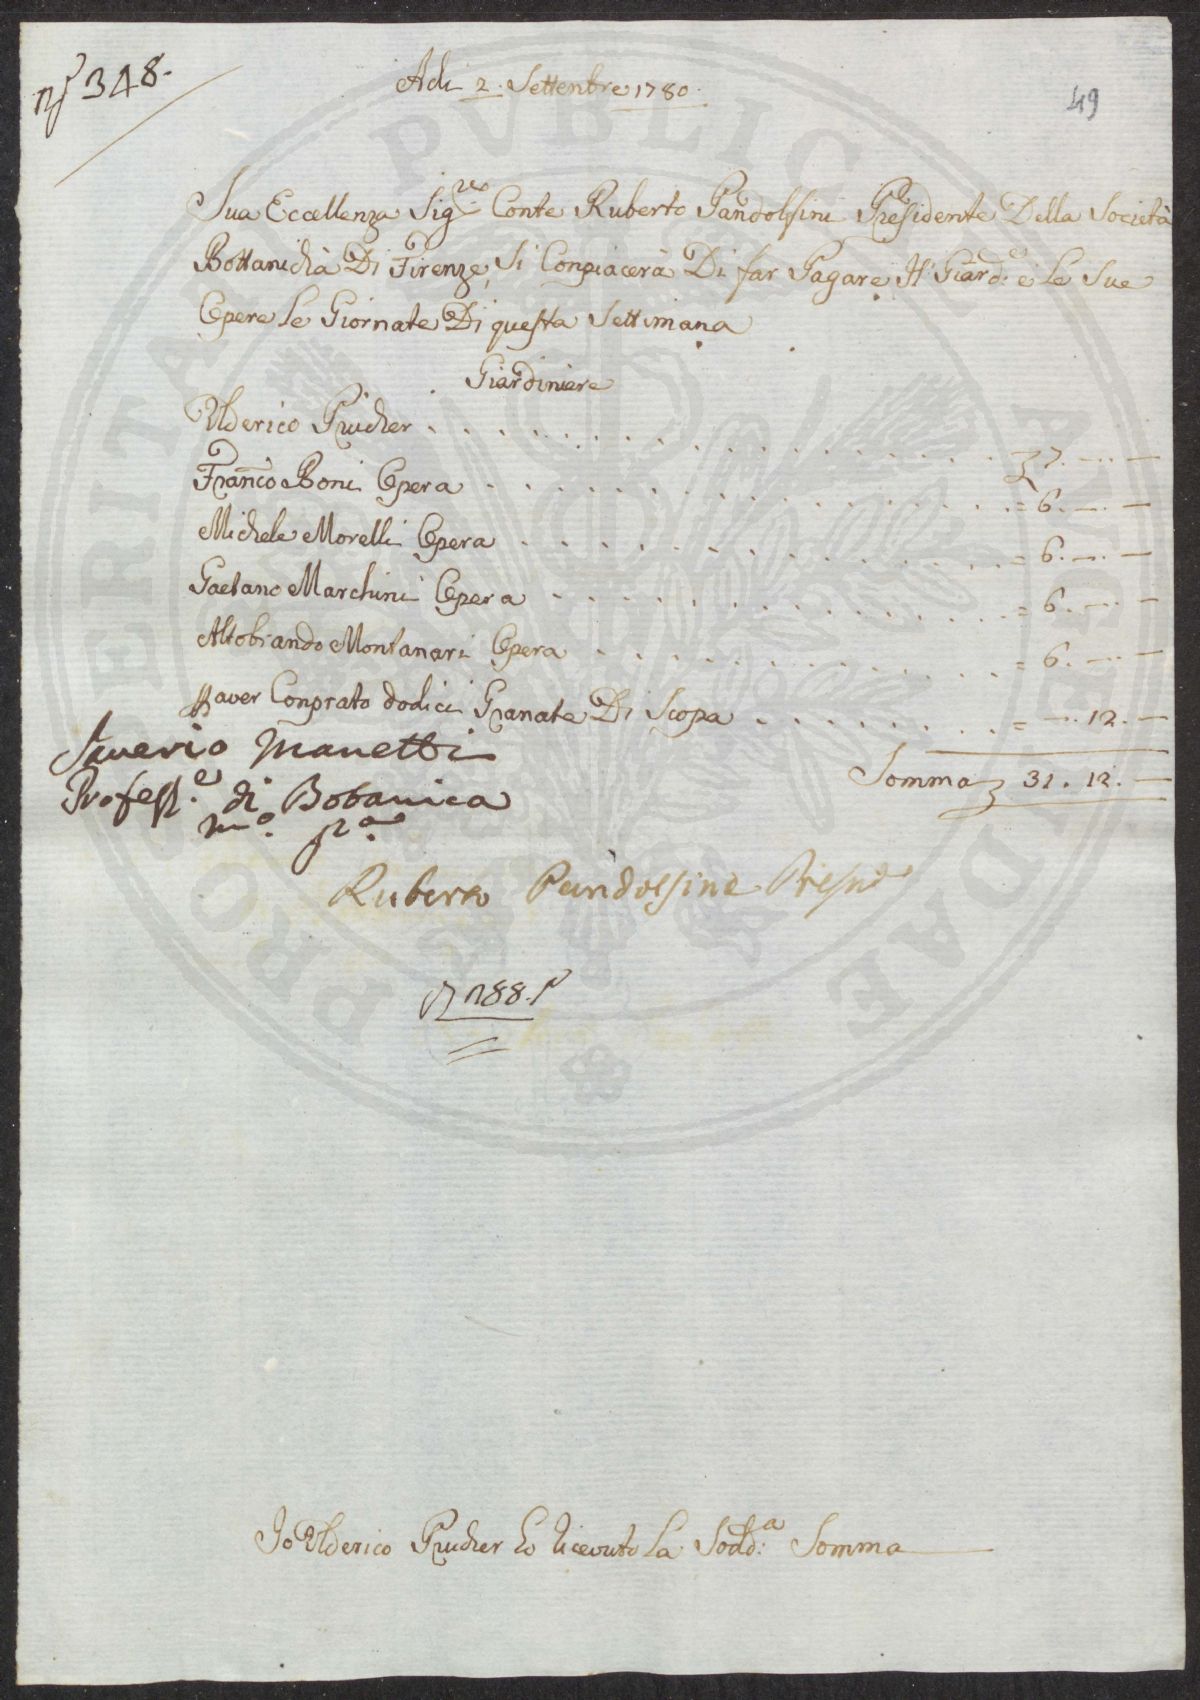 N° 348.
49
Adi 2. Settenbre 1780.
Sua Eccellenza Sig.re Conte Ruberto Pandolfini Presidente Della Società
Bottanicha Di Firenze, Si Conpiacerà Di far Pagare Il Giard.e e Le Sue
Opere Le Giornate Di questa Settimana
Giardiniere
Ulderico Prucher . . . . . . . . . . . . . 7. —. —
Franco Boni Opera . . . . . . . . . . . . = 6. —. —
Michele Morelli Opera . . . . . . . . . . = 6. —. —
Gaetano Marchini Opera . . . . . . . . . = 6. —. —
Altobrando Montanari Opera . . . . . . . . = 6. —. —
P aver Conprato dodici Granate Di Scopa . . . . . . = —. 12. —
Somma 31. 12. —
Saverio Manetti
Profess.e di Botanica
m.o p.a
Ruberto Pandolfini Presid.e
188.
Io Ulderico Prucher ho ricevuto La Sodd.a Somma
PROSPERITATI PUBLICAE AUGENDAE